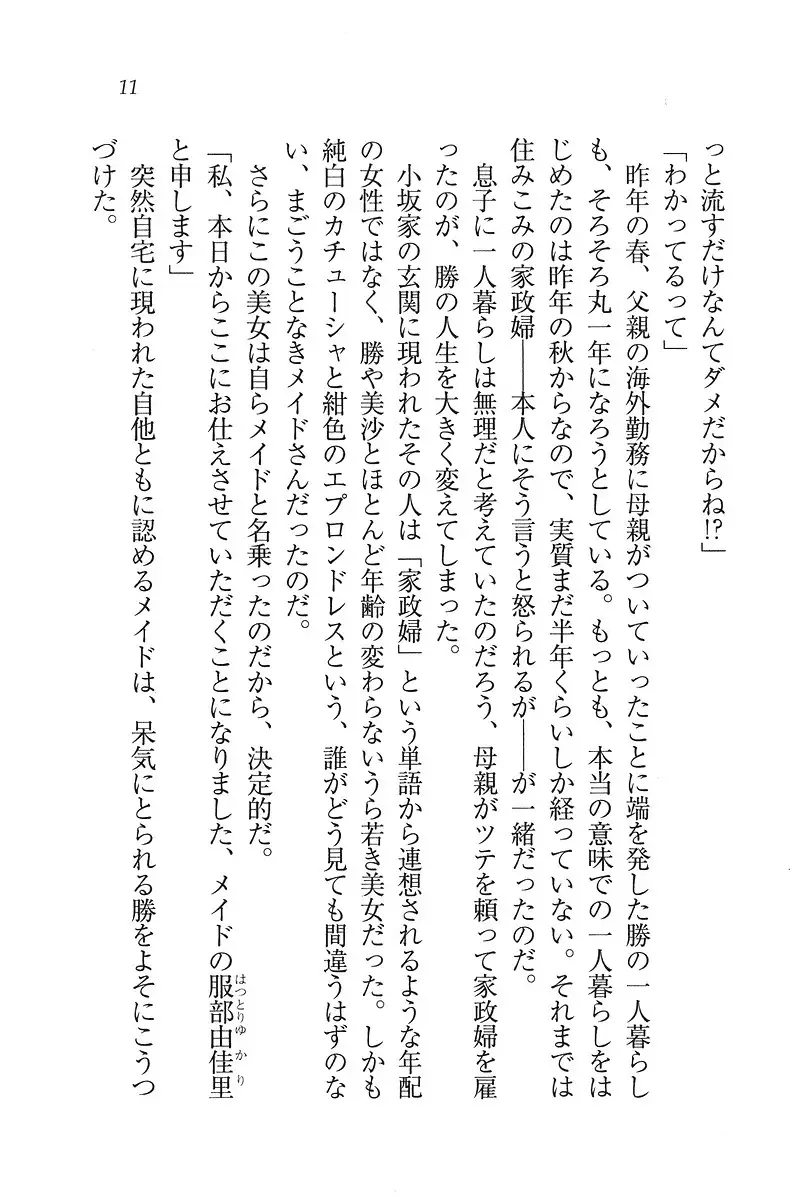 11
っと流すだけなんてダメだからね!?」
「わかってるって」
昨年の春、父親の海外勤務に母親がついていったことに端を発した勝の一人暮らし
も、そろそろ丸一年になろうとしている。もっとも、本当の意味での一人暮らしをは
じめたのは昨年の秋からなので、実質まだ半年くらいしか経っていない。それまでは
住みこみの家政婦――本人にそう言うと怒られるが――が一緒だったのだ。
息子に一人暮らしは無理だと考えていたのだろう、母親がツテを頼って家政婦を雇
ったのが、勝の人生を大きく変えてしまった。
小坂家の玄関に現われたその人は「家政婦」という単語から連想されるような年配
の女性ではなく、勝や美沙とほとんど年齢の変わらないうら若き美女だった。しかも
純白のカチューシャと紺色のエプロンドレスという、誰がどう見ても間違うはずのな
い、まごうことなきメイドさんだったのだ。
さらにこの美女は自らメイドと名乗ったのだから、決定的だ。
「私、本日からここにお仕えさせていただくことになりました、メイドの服部由佳里
はっとりゆかり
と申します」
突然自宅に現われた自他ともに認めるメイドは、呆気にとられる勝をよそにこうつ
づけた。